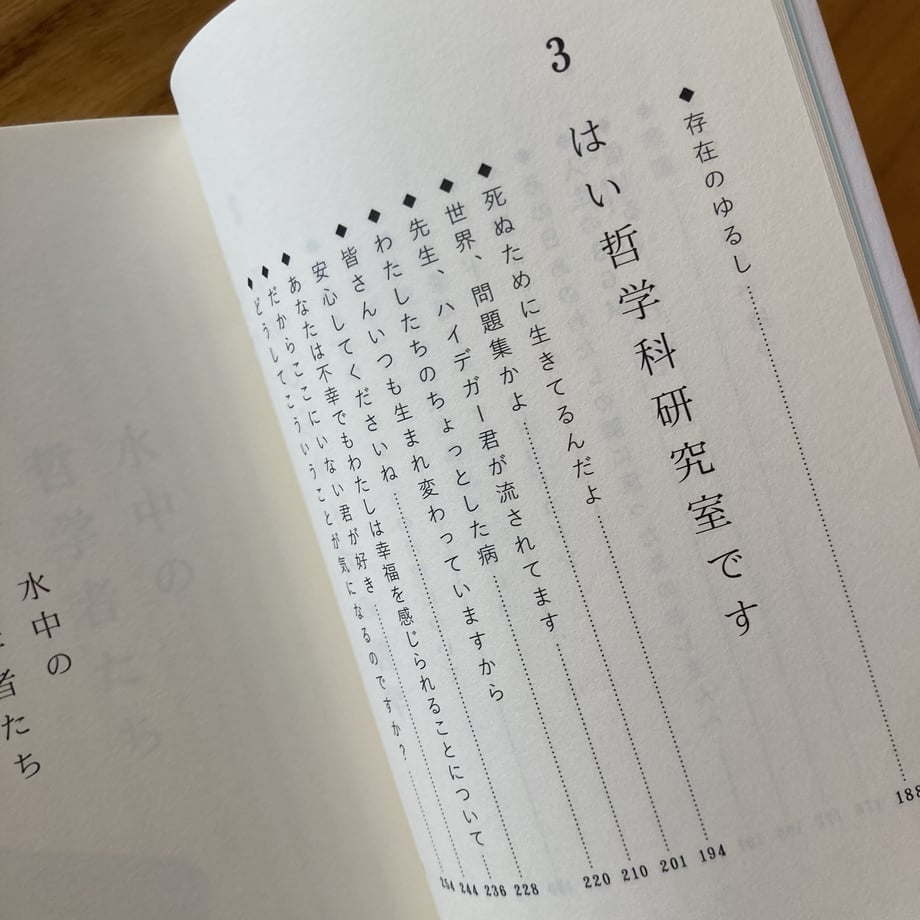 ◆存在のゆるし……188
3
はい哲学科研究室です
◆死ぬために生きてるんだよ……194
◆世界、問題集かよ……201
◆先生、ハイデガー君が流されてます……210
◆わたしたちのちょっとした病……220
◆皆さんいつも生まれ変わっていますから
安心してくださいね……228
◆あなたは不幸でもわたしは幸福を感じられることについて……236
◆だからここにいない君が好き……244
◆どうしてこういうことが気になるのですか?……254
水中の
者たち